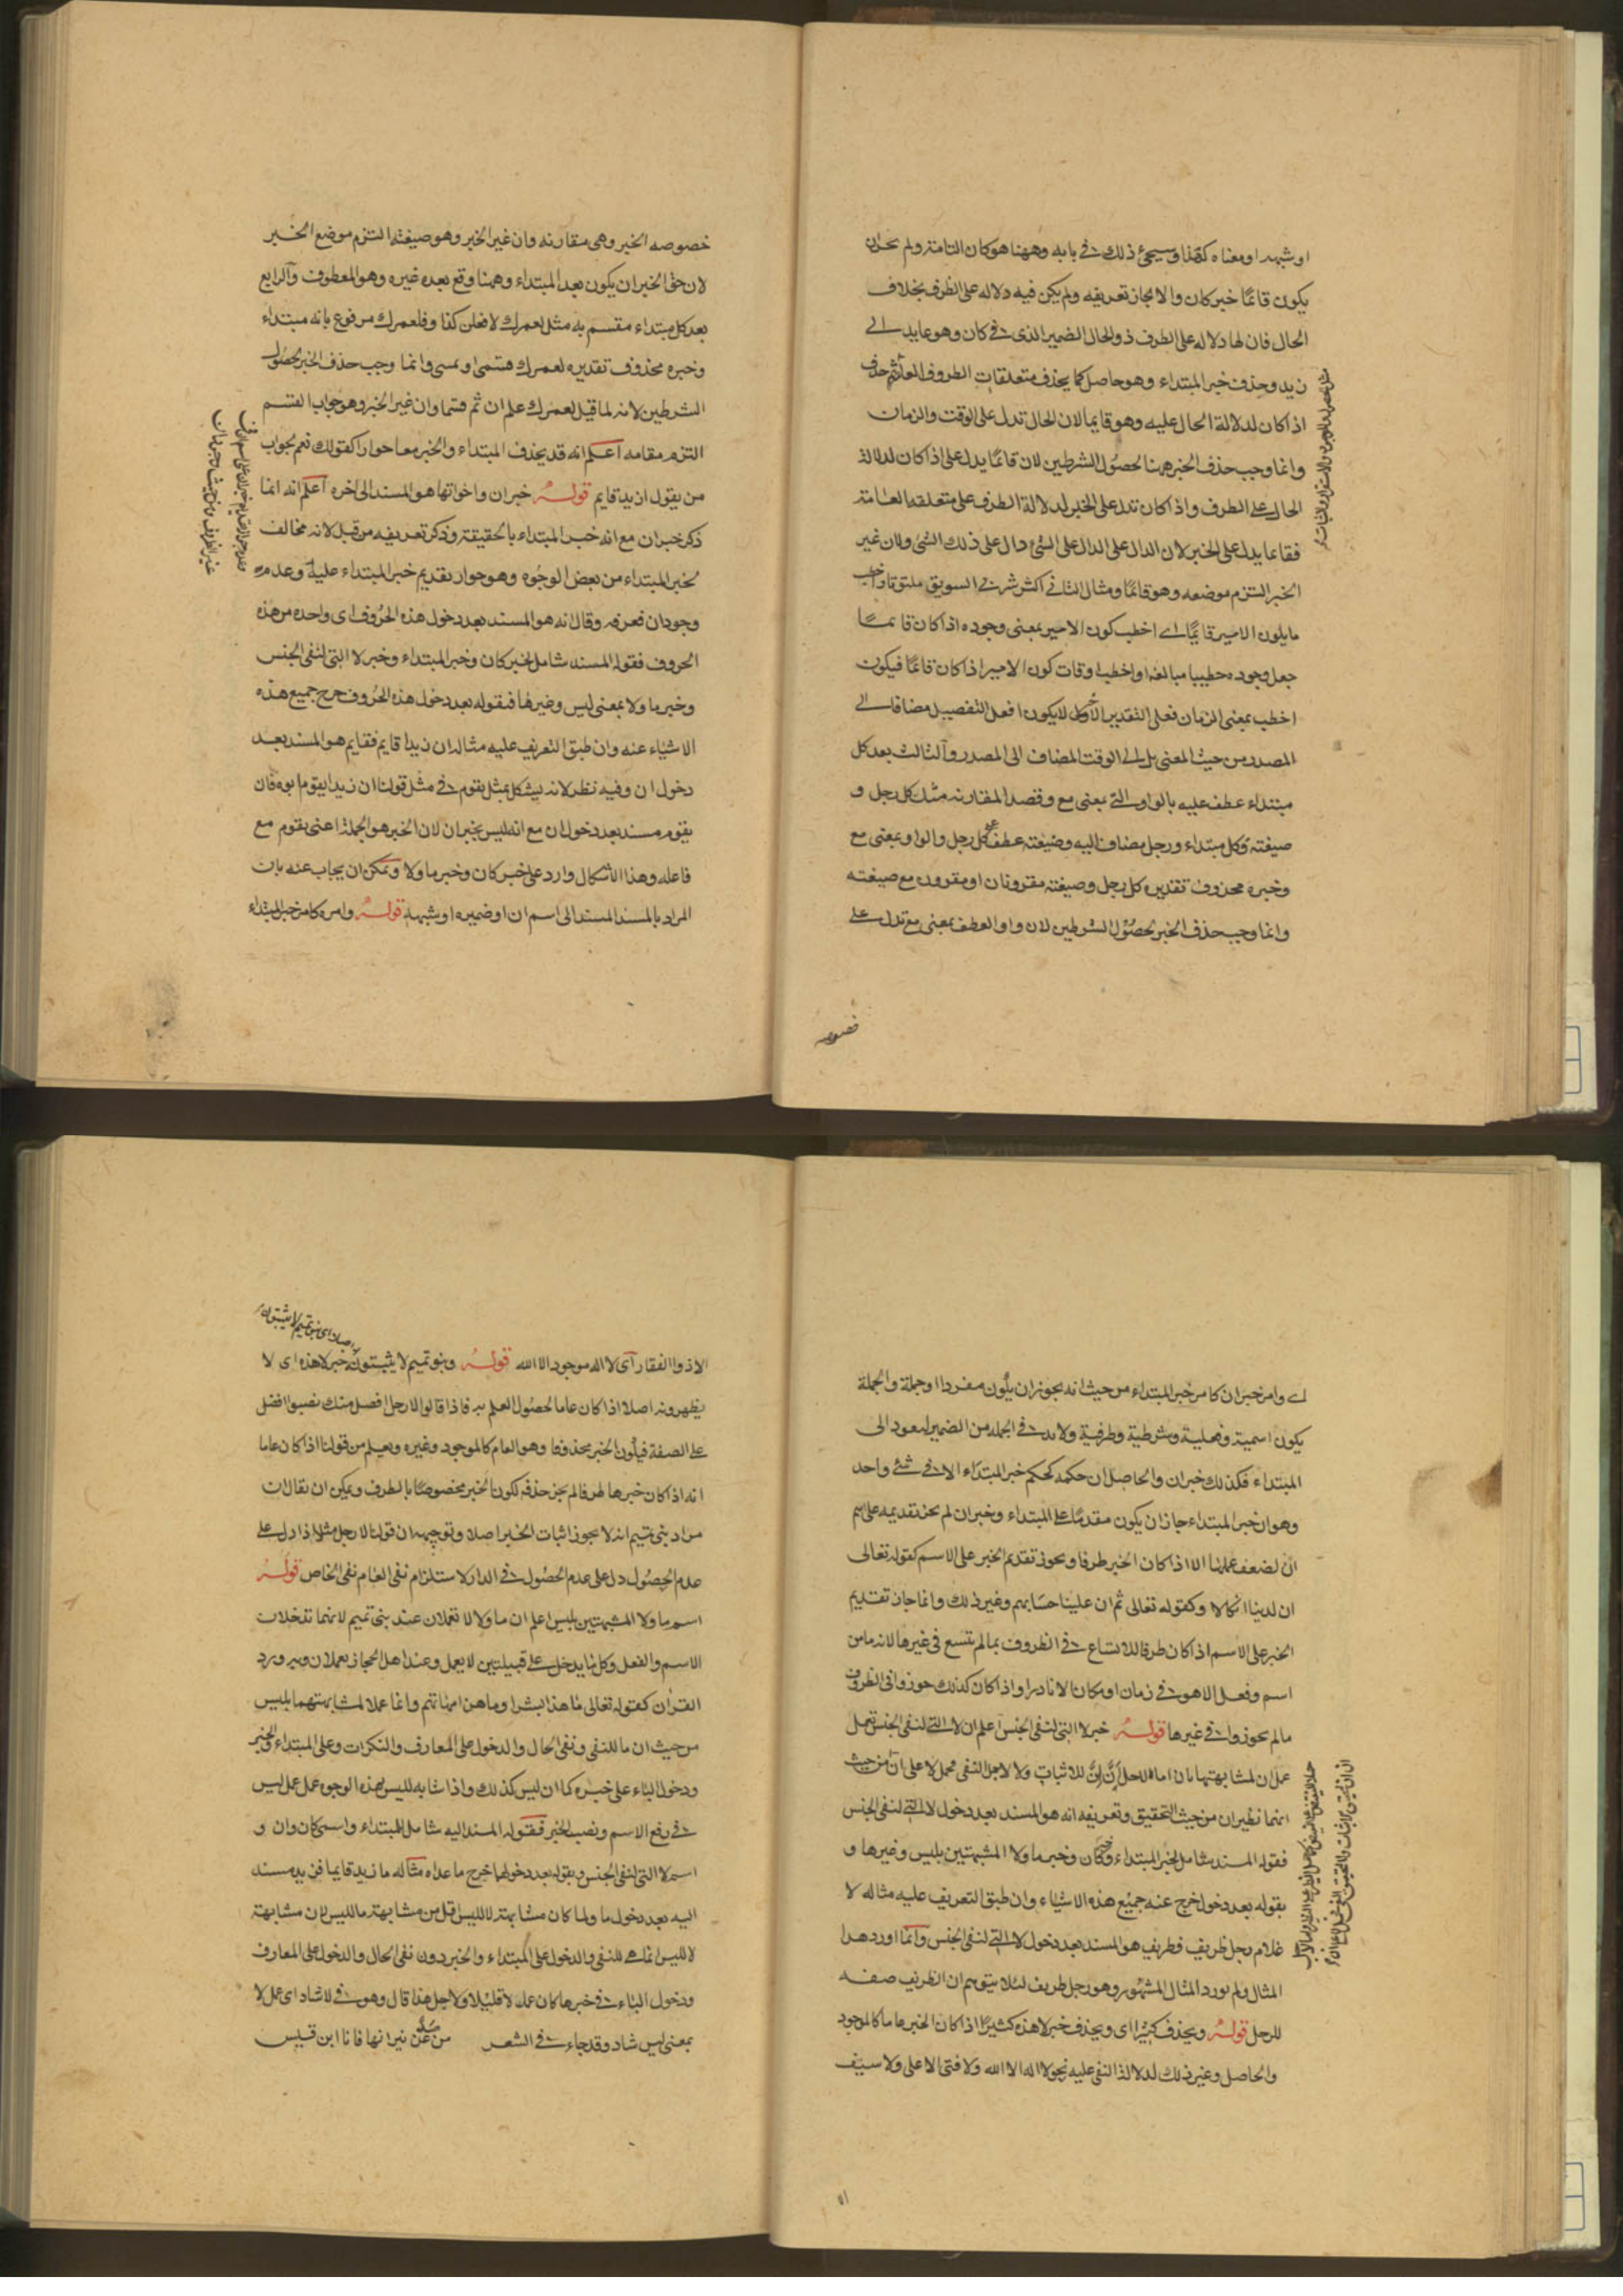 او شبهه او معناه كقمنا وسيجئ ذلك فى بابه وههنا هو كان التامة ولم يجز ان
يكون قائما خبر كان والا لجاز تعريفه ولم يكن فيه دلاله على الظرف بخلاف
الحال فان لها دلاله على الظرف ذو الحال الضمير الذى فى كان وهو عايد الى
زيد وحذف خبر المبتداء وهو حاصل كما يحذف متعلقات الظروف العامة ثم حذف
اذا كان لدلالة الحال عليه وهو قايما لان الحال تدل على الوقت والزمان
وانما وجب حذف الخبر ههنا لحصول الشرطين لان قائما يدل على اذا كان لدلالة
الحال على الظرف واذا كان تدل على الخبر لدلالة الظرف على متعلقه العامة
فقايما يدل على الخبر لان الدال على الدال على الشئ دال على ذلك الشئ ولان غير
الخبر التزم موضعه وهو قائما ومثال الثانى اكثر شربى السويق ملتوتا واخطب
ما يكون الامير قايما اى اخطب كون الامير بمعنى وجوده اذا كان قائما
جعل وجوده خطيبا مبالغة او اخطب اوقات كون الامير اذا كان قائما فيكون
اخطب بمعنى الزمان فعلى التقدير الاول لا يكون افعل التفضيل مضافا الى
المصدر من حيث المعنى بل الى الوقت المضاف الى المصدر والثالث بعد كل
مبتداء عطف عليه بالواو التى بمعنى مع وقصد المقارنه مثل كل رجل و
ضيعته فكل مبتداء ورجل مضاف اليه وضيعته عطف على كل رجل والواو بمعنى مع
وخبره محذوف تقديره كل رجل وضيعته مقرونان او مقرون مع ضيعته
وانما وجب حذف الخبر لحصول الشرطين لان واو العطف بمعنى مع تدل على
خصوصه
خصوصه الخبر وهى مقارنه وان غير الخبر وهو ضيعته التزم موضع الخبر
لان حق الخبر ان يكون بعد المبتداء وههنا وقع بعده غيره وهو المعطوف والرابع
بعد كل مبتداء مقسم به مثل لعمرك لافعلن كذا وفلعمرك مرفوع بانه مبتداء
وخبره محذوف تقديره لعمرك قسمى او يمينى وانما وجب حذف الخبر لحصول
الشرطين لانه لما قيل لعمرك علم ان ثم قسما وان غير الخبر وهو جواب القسم
التزم مقامه اعلم انه قد يحذف المبتداء والخبر معا جوازا كقولك نعم بجواب
من يقول ازيد قايم قوله خبر ان واخواتها هو المسند الى اخره اعلم انه انما
ذكر خبر ان مع انه خبر المبتداء بالحقيقة وذكر تعريفه من قبل لانه مخالف
لخبر المبتداء من بعض الوجوه وهو جواز تقديم خبر المبتداء عليه وعدمه
وجود ان فعرفه وقال انه هو المسند بعد دخول هذه الحروف اى واحده من هذه
الحروف فقوله المسند شامل لخبر كان وخبر المبتداء وخبر لا التى لنفى الجنس
وخبر ما ولا بمعنى ليس وغيرها فبقوله بعد دخول هذه الحروف خرج جميع هذه
الاشياء عنه وانطبق التعريف عليه مثاله ان زيدا قايم فقايم هو المسند بعد
دخول ان وفيه نظر لانه يشكل بمثل يقوم فى مثل قولنا ان زيدا يقوم ابوه فان
يقوم مسند بعد دخول ان مع انه ليس بخبر ان لان الخبر هو الجملة اعنى يقوم مع
فاعله وهذا الاشكال وارد على خبر كان وخبر ما ولا ويمكن ان يجاب عنه بان
المراد بالمسند المسند الى اسم ان او ضميره او شبهه قوله وامره كامر خبر المبتداء
اى وامر خبر ان كامر خبر المبتداء من حيث انه يجوز ان يكون مفردا او جملة والجملة
يكون اسمية وفعلية وشرطية وظرفية ولابد فى الجمله من الضمير ليعود الى
المبتداء فكذلك خبر ان والحاصل ان حكمه كحكم خبر المبتداء الا فى شئ واحد
وهو ان خبر المبتداء جاز ان يكون مقدما على المبتداء وخبر ان لم يجز تقديمه على اسم
ان لضعف عملها الا اذا كان الخبر ظرفا ويجوز تقديم الخبر على الاسم كقوله تعالى
ان لدينا انكالا وكقوله تعالى ثم ان علينا حسابهم وغير ذلك وانما جاز تقديم
الخبر على الاسم اذا كان ظرفا للاتساع فى الظروف بما لم تتسع فى غيرها لانه ما من
اسم وفعل الا هو فى زمان او مكان الا نادرا واذا كان كذلك جوزوا فى الظروف
ما لم يجوزوا فى غيرها قوله خبر لا التى لنفى الجنس اعلم ان لا التى لنفى الجنس تعمل
عمل ان لمشابهتها بان
انهما نظيران من حيث التحقيق وتعريفه انه هو المسند بعد دخول لا التى لنفى الجنس
فقوله المسند شامل لخبر المبتداء وخبر كان وخبر ما ولا المشبهتين بليس وغيرها و
بقوله بعد دخول خرج عنه جميع هذه الاشياء وانطبق التعريف عليه مثاله لا
غلام رجل ظريف فظريف هو المسند بعد دخول لا التى لنفى الجنس وانما اورد هذا
المثال ولم يورد المثال المشهور وهو رجل ظريف لئلا يتوهم ان الظريف صفه
للرجل قوله ويحذف كثيرا اى ويحذف خبر لا هذه كثيرا اذا كان الخبر عاما كالموجود
والحاصل وغير ذلك لدلالة النفى عليه نحو لا اله الا الله ولا فتى الا على ولا سيف
الا ذو الفقار اى لا اله موجود الا الله قوله وبنو تميم لا يثبتونه خبر لا هذه اى لا
يظهرونه اصلا اذا كان عاما لحصول العلم به فاذا قالوا لا رجل افضل منك نصبوا افضل
على الصفة فيكون الخبر محذوفا وهو العام كالموجود وغيره ويعلم من قولنا اذا كان عاما
انه اذا كان خبرها ظرفا لم يجز حذفه لكون الخبر مخصوصا بالظرف ويمكن ان يقال ان
مراد بنى تميم انه لا يجوز اثبات الخبر اصلا وتوجيهه ان قولنا لا رجل مثلا اذا دل على
عدم الحصول دل على عدم الحصول فى الدار لاستلزام نفى العام نفى الخاص قوله
اسم ما ولا المشبهتين بليس اعلم ان ما ولا لا تعملان عند بنى تميم لانهما تدخلان
الاسم والفعل وكل ما يدخل على قبيلتين لا يعمل وعند اهل الحجاز يعملان وبه ورد
القران كقوله تعالى ما هذا بشرا وما هن امهاتهم وانما عملا لمشابهتهما بليس
من حيث ان ما للنفى ونفى الحال والدخول على المعارف والنكرات وعلى المبتداء والخبر
ودخول الباء على خبره كما ان ليس كذلك واذا شابه لليس بهذه الوجوه عمل عمل ليس
فى رفع الاسم ونصب الخبر فقوله المسند اليه شامل للمبتداء واسم كان وان و
اسم لا التى لنفى الجنس وبقوله بعد دخولهما خرج ما عداه مثاله ما زيد قايما فزيد مسند
اليه بعد دخول ما ولما كان مشابهة لا لليس اقل من مشابهة ما لليس لان مشابهة
لا لليس انما هى للنفى والدخول على المبتداء والخبر دون نفى الحال والدخول على المعارف
ودخول الباء فى خبرها كان عمله لا قليلا ولاجل هذا قال وهو فى لا شاذ اى عمل لا
بمعنى ليس شاذ وقد جاء فى الشعر من صد عن نيرانها فانا ابن قيس